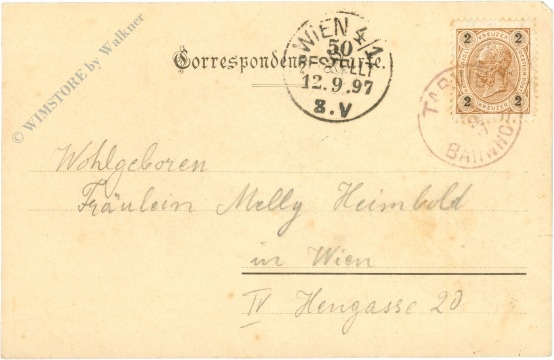 © WIMSTORE by Walkner
Correspondenz-Karte.
WIEN 4/1
50
BESTELLT
12.9.97
8.V
2 KREUZER 2
2 KREUZER 2
BAHNHOF
Wohlgeboren
Fräulein Melly Heimbold
in Wien
IV Heugasse 20